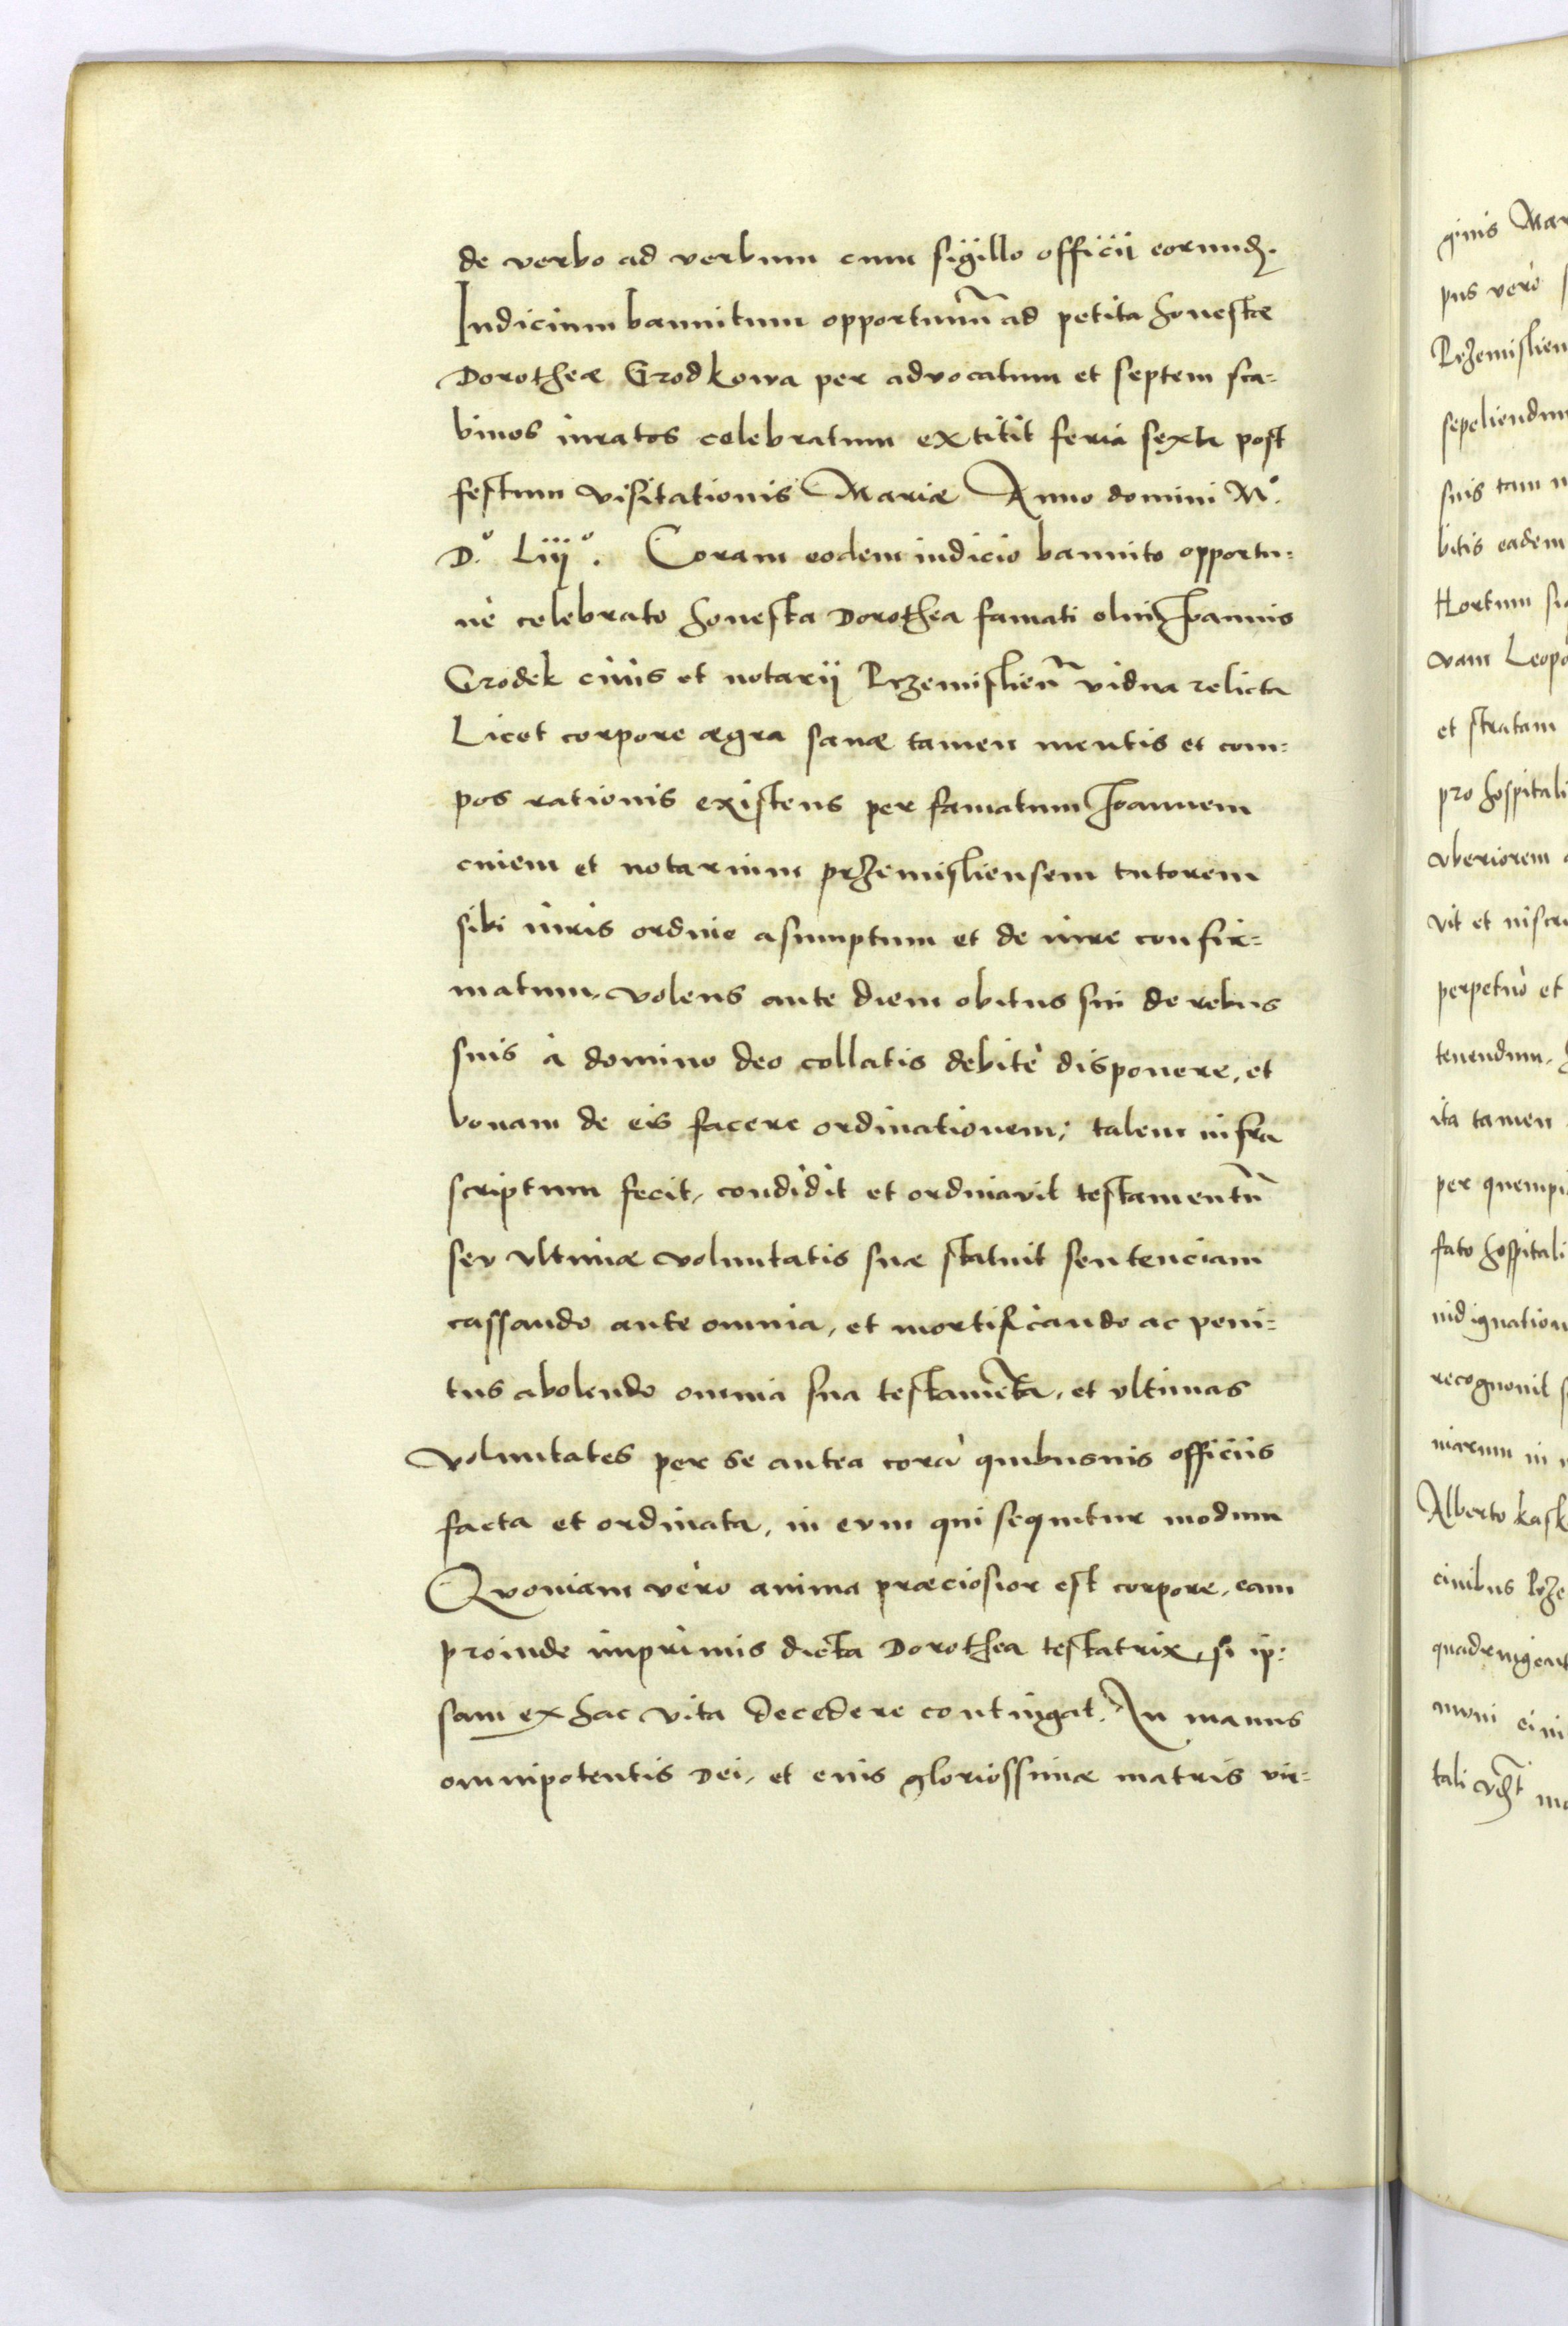 de verbo ad verbum cum sigillo officii eorund.
Iudicium bannitum opportunũ ad petita honestæ
Dorotheæ Grodkowa per advocatum et septem sca=
binos iuratos celebratum extitit feria sexta post
festum visitationis Mariæ Anno domini M.º
D.º Liijº. Coram eodem iudicio bannito opportu=
nè celebrato honesta Dorothea famati olim Joannis
Grodek ciuis et notarij Przemislien̄ vidua relicta
Licet corpore ægra sanæ tamen mentis et com=
pos rationis existens per famatum Joannem
ciuem et notarium przemisliensem tutorem
sibi iuris ordine asumptum et de iure confir=
matum, volens ante diem obitus sui de rebus
suis à domino deo collatis debitè disponere, et
bonam de eis facere ordinationem; talem infra
scriptum fecit, condidit et ordinavit testamentũ
sev vltimæ voluntatis suæ statuit sentenciam
cassando ante omnia, et mortificando ac peni=
tus abolendo omnia sua testamēta, et vltimas
voluntates per se antea corā quibusuis officiis
facta et ordinata, in evm qui sequitur modum
Qvoniam vèro anima præciosior est corpore, eam
proinde imprimis dicta Dorothea testatrix, si ip=
sam ex hac vita decedere contingat. In manus
omnipotentis Dei, et eius gloriossimæ matris vir=
ginis Mar
pus vero
Przemislien
sepeliendum
suis tam
bitis eadem
Hortum
vam Leopo
et stratam
pro hospitali
vberiorem
vit et inscri
perpetuò et
tenendum,
ita tamen
per quempi
fato hospitali
indignation
recognouit
niarum in
Alberto kask
ciuibus Prze
quadringent
muni
tali